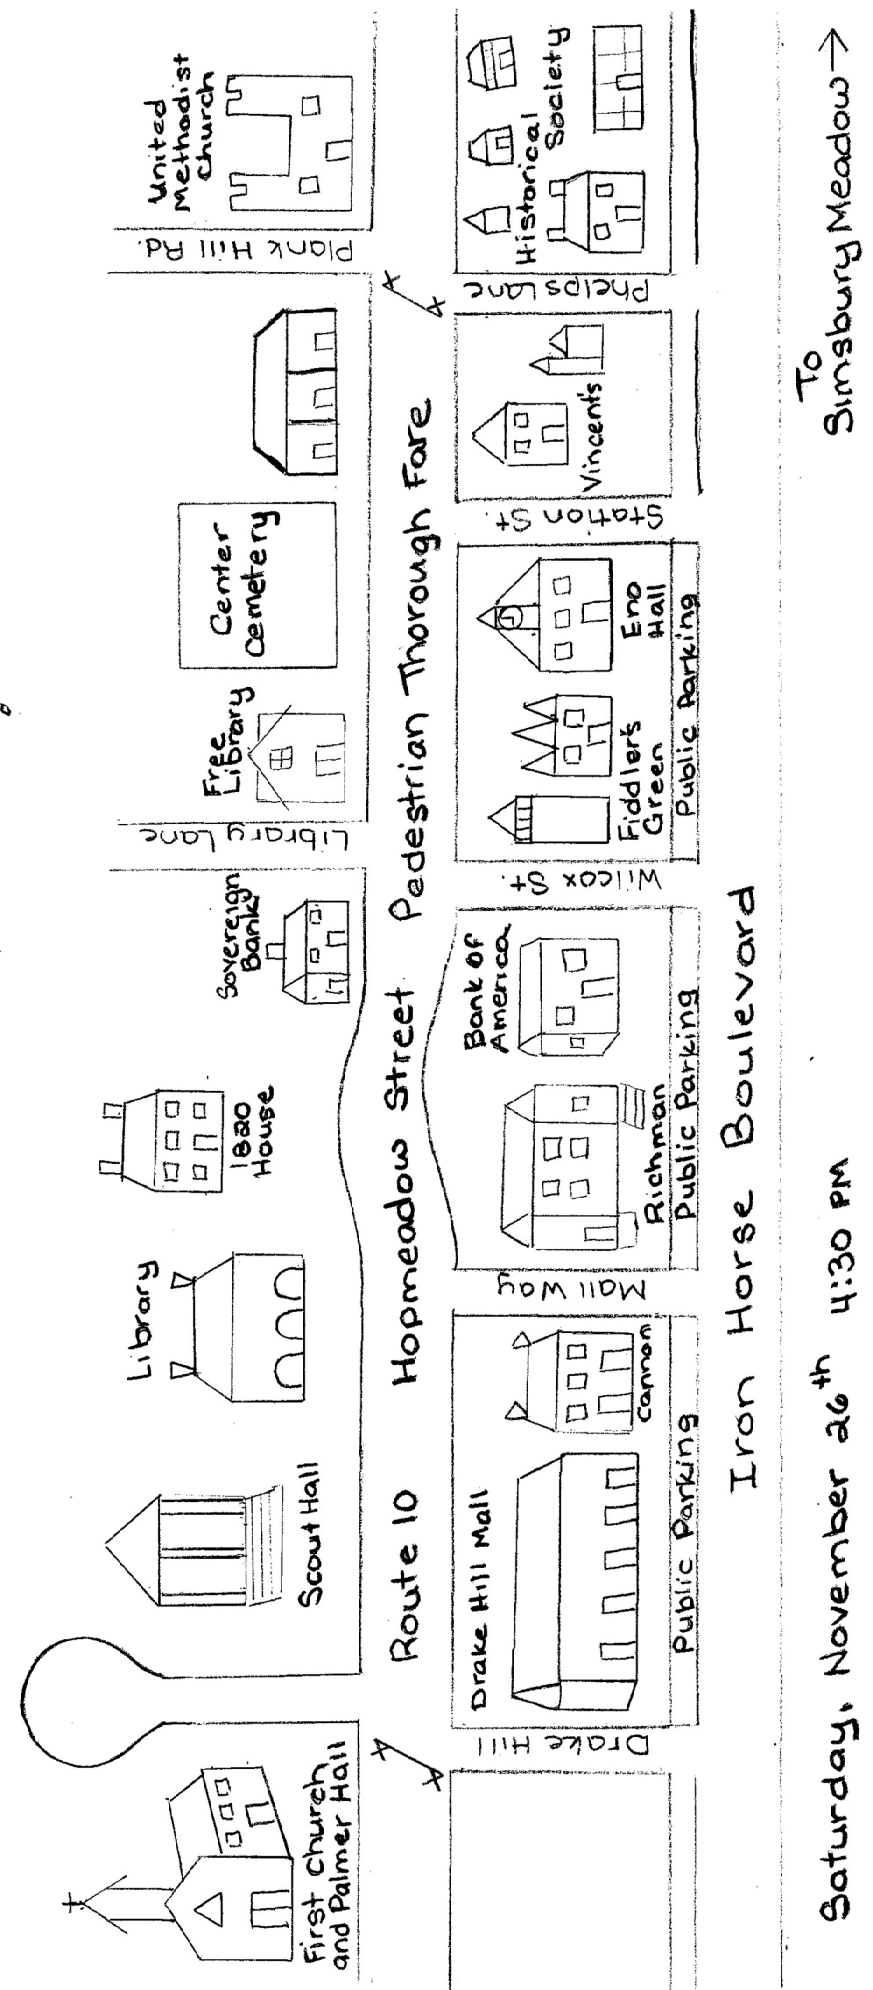 First Church
and Palmer Hall
Scout Hall
Library
1820
House
Sovereign
Bank
Library Lane
Free
Library
Center
Cemetery
Plank Hill Rd.
United
Methodist
church
Route 10 Hopmeadow Street Pedestrian Thorough Fare
Drake Hill
Drake Hill Mall
Cannon
Public Parking
Mall Way
Richman
Bank of
America
Public Parking
Wilcox St.
Fiddler's
Green
Eno
Hall
Public Parking
Station St.
Vincent's
Phelps Lane
Historical
Society
Iron Horse Boulevard
To
Simsbury Meadow →
Saturday, November 26th 4:30 PM